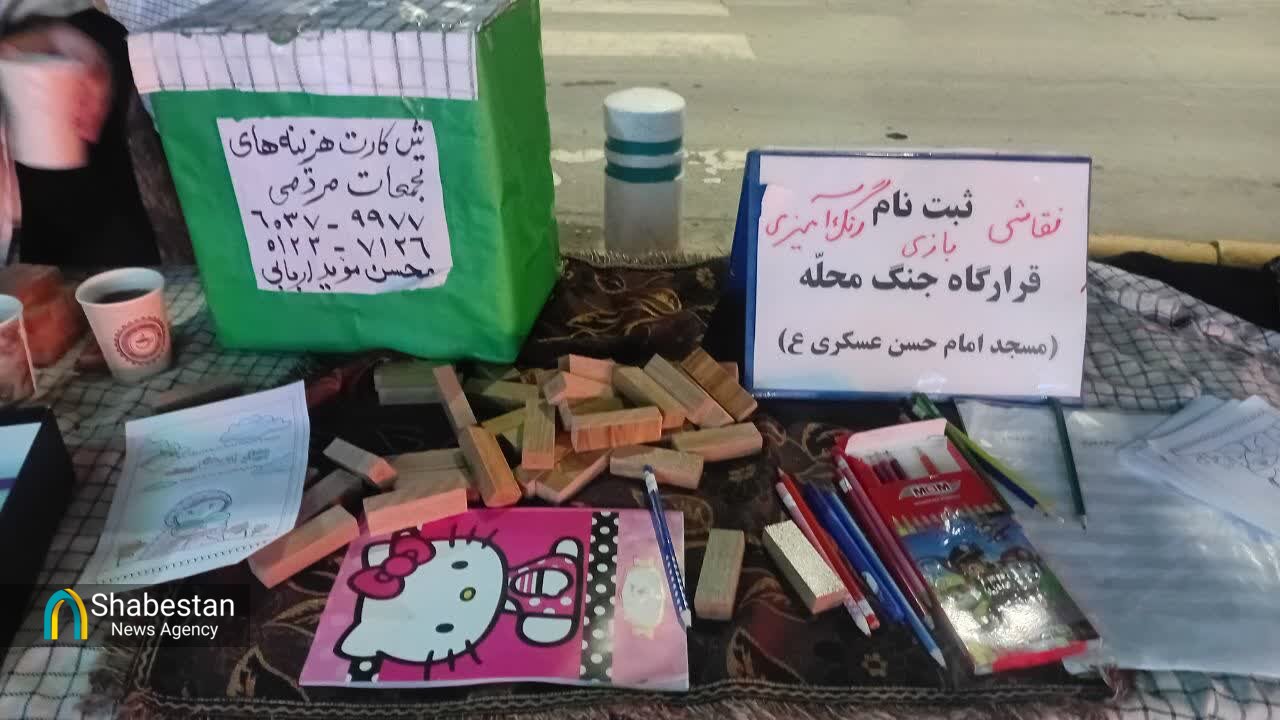 ش کارت هزینه‌های
تجمعات مردمی
۶۰۳۷ - ۹۹۷۷
۵۱۲۳ - ۷۱۲۶
محسن موید اربابی
ثبت نام
نقاشی بازی رنگ‌آمیزی
قرارگاه جنگ محلّه
(مسجد امام حسن عسکری ع)
Shabestan
News Agency